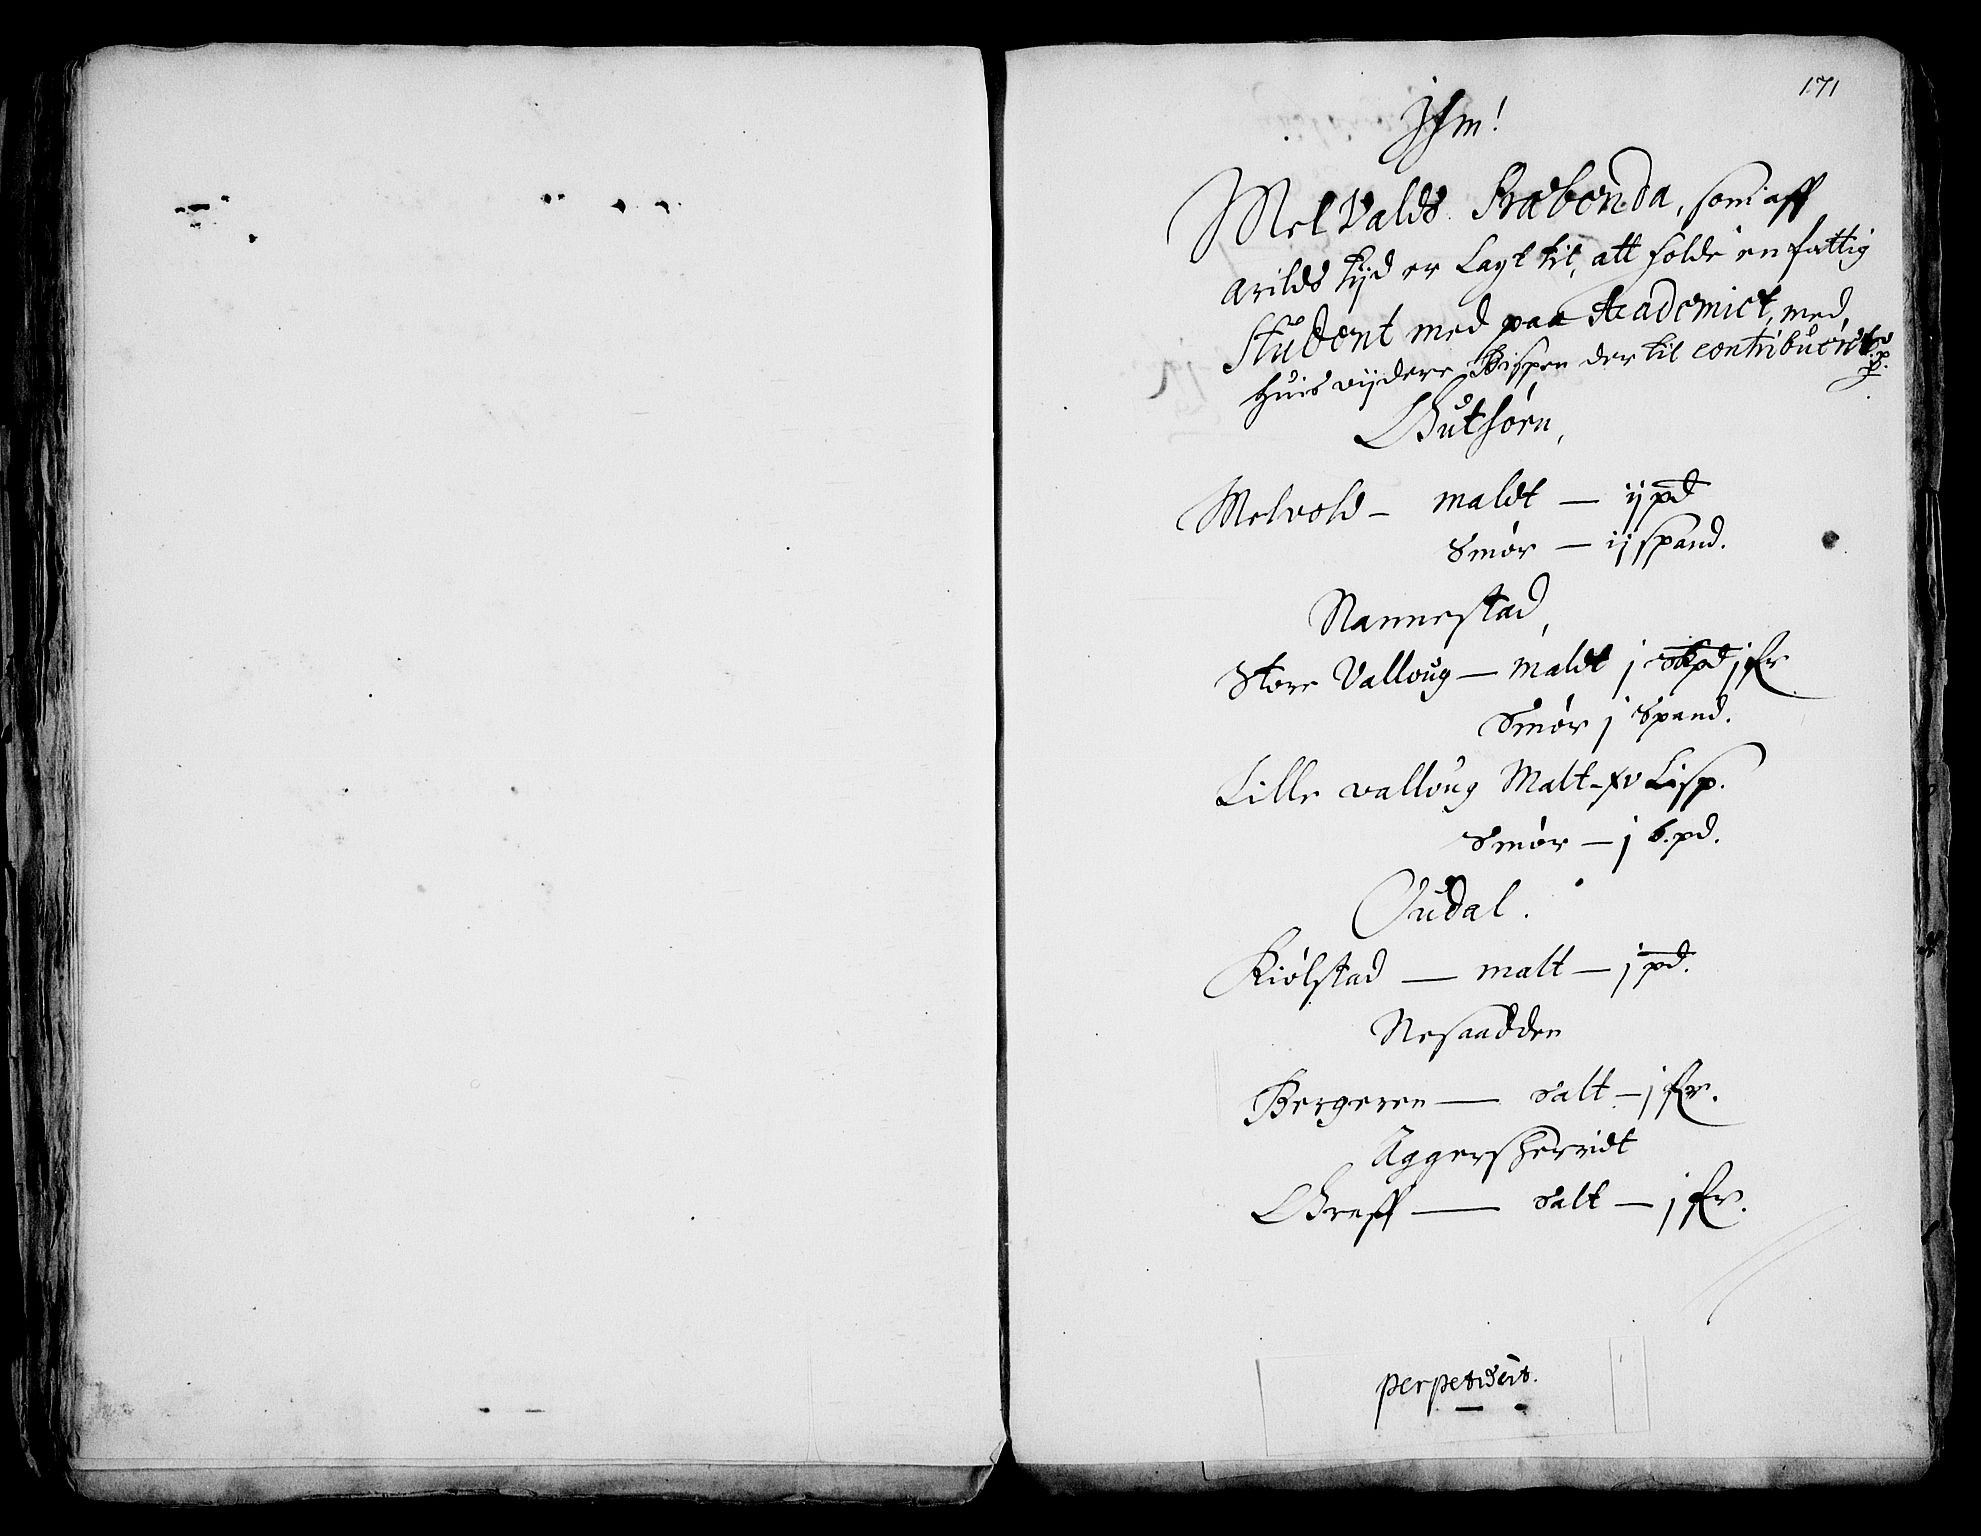 171
Jhm!
Melvalds Præbenda, som aff
arilds tijd er Lagt til, att holde en fattig
Student med paa Academiet, med
huis vijdere Bispen der til contribuerer
Gutsorn,
Melvold - maldt - ij pd
Smør - ij spand.
Nannestad,
Store Valloug - maldt j Skpd j fr
Smør j Spand.
Lille valloug Malt - xv Lisp.
Smør - j b.pd.
Oudal.
Kiølstad - malt - j pd.
Nesaadden
Bergeren - salt - j fr.
Aggersherridt
Greff - salt - j fr.